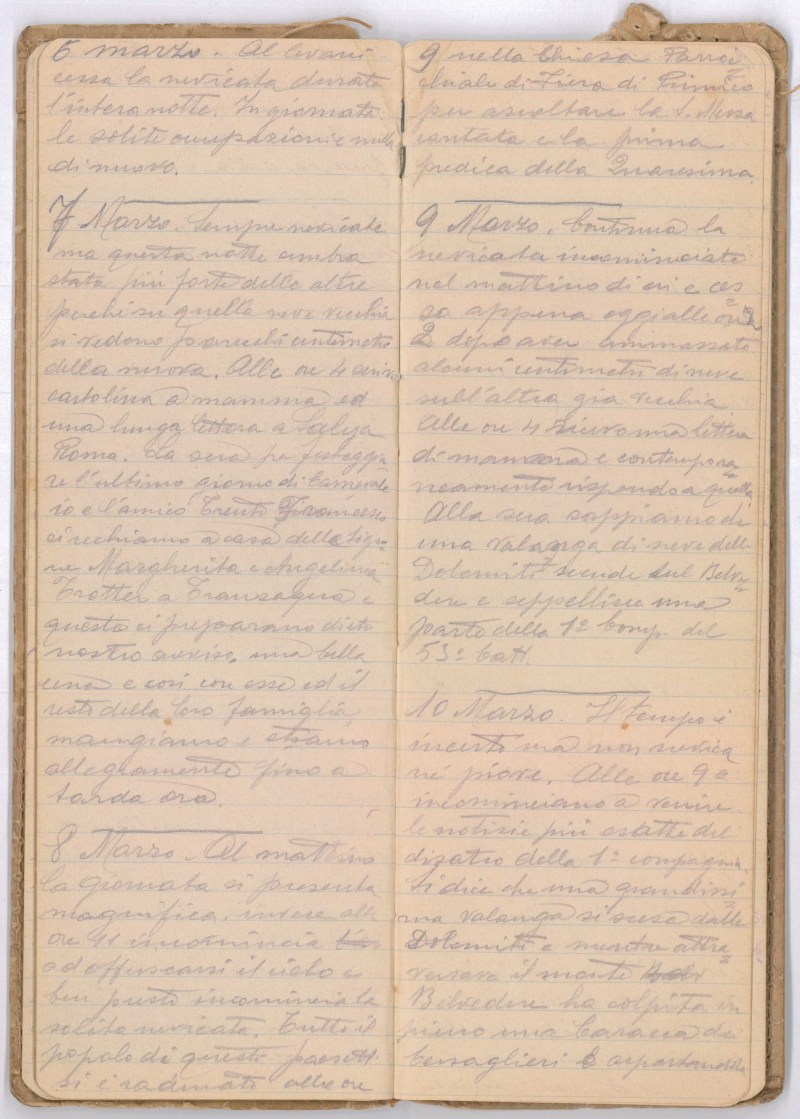 6 marzo. Al levarsi
cessa la nevicata durata
l'intera notte. In giornata
le solite occupazioni e nulla
di nuovo.
7 Marzo. Sempre nevicate
ma questa notte sembra
stata più forte delle altre
perchè su quella neve vecchia
si vedono parecchi centimetri
della nuova. Alle ore 4 scrivo
cartolina a mamma ed
una lunga lettera a
Roma. La sera per festeggia
re l'ultimo giorno di Carneva
io e l'amico Trento Francesco
ci rechiamo a casa delle Signo
ne Margherita e Angelina
Trotter a Transaqua e
queste ci preparano dietro
nostro avviso, una bella
cena e così con esse ed il
resto della loro famiglia
mangiamo e stiamo
allegramente fino a
tarda ora.
8 Marzo. Al mattino
la giornata si presenta
magnifica, invece alle
ore 11 incomincia
ad offuscarsi il cielo e
ben presto incomincia la
solita nevicata. Tutto il
popolo di questi paesetti
si è radunato alle ore
9 nella Chiesa Parroc
chiale di Fiera di Primiero
per ascoltare la S. Messa
cantata e la prima
predica della Quaresima.
9 Marzo. Continua la
nevicata incominciata
nel mattino di ieri e ces
sa appena oggi alle ore
2 dopo aver ammassato
alcuni centimetri di neve
sull'altra già vecchia
Alle ore 4 ricevo una lettera
di mamma e contempora
neamente rispondo a quella
Alla sera sappiamo di
una valanga di neve dalle
Dolomiti scende sul Belve
dere e seppellisce una
parte della 1ª Comp. del
53º batt.
10 Marzo. Il tempo è
incerto ma non nevica
nè piove. Alle ore 9
incominciano a venire
le notizie più esatte del
disatro della 1ª compagnia.
Si dice che una grandissi
ma valanga si scesa dalle
Dolomiti e mentre attra
versava il monte
Belvedere ha colpita in
pieno una baracca dei
bersaglieri asportandola